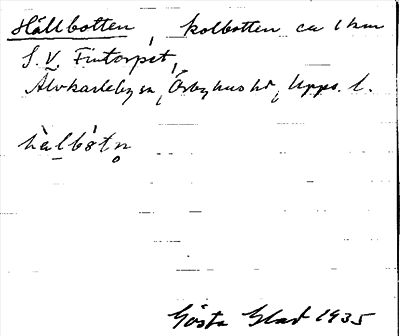 Hällbotten, kolbotten ca 1 km
S. V. Fintorpet,
Älvkarleby sn, Örbyhus hd, Upps. l.
hàlbòtn̥
Gösta Glad 1935